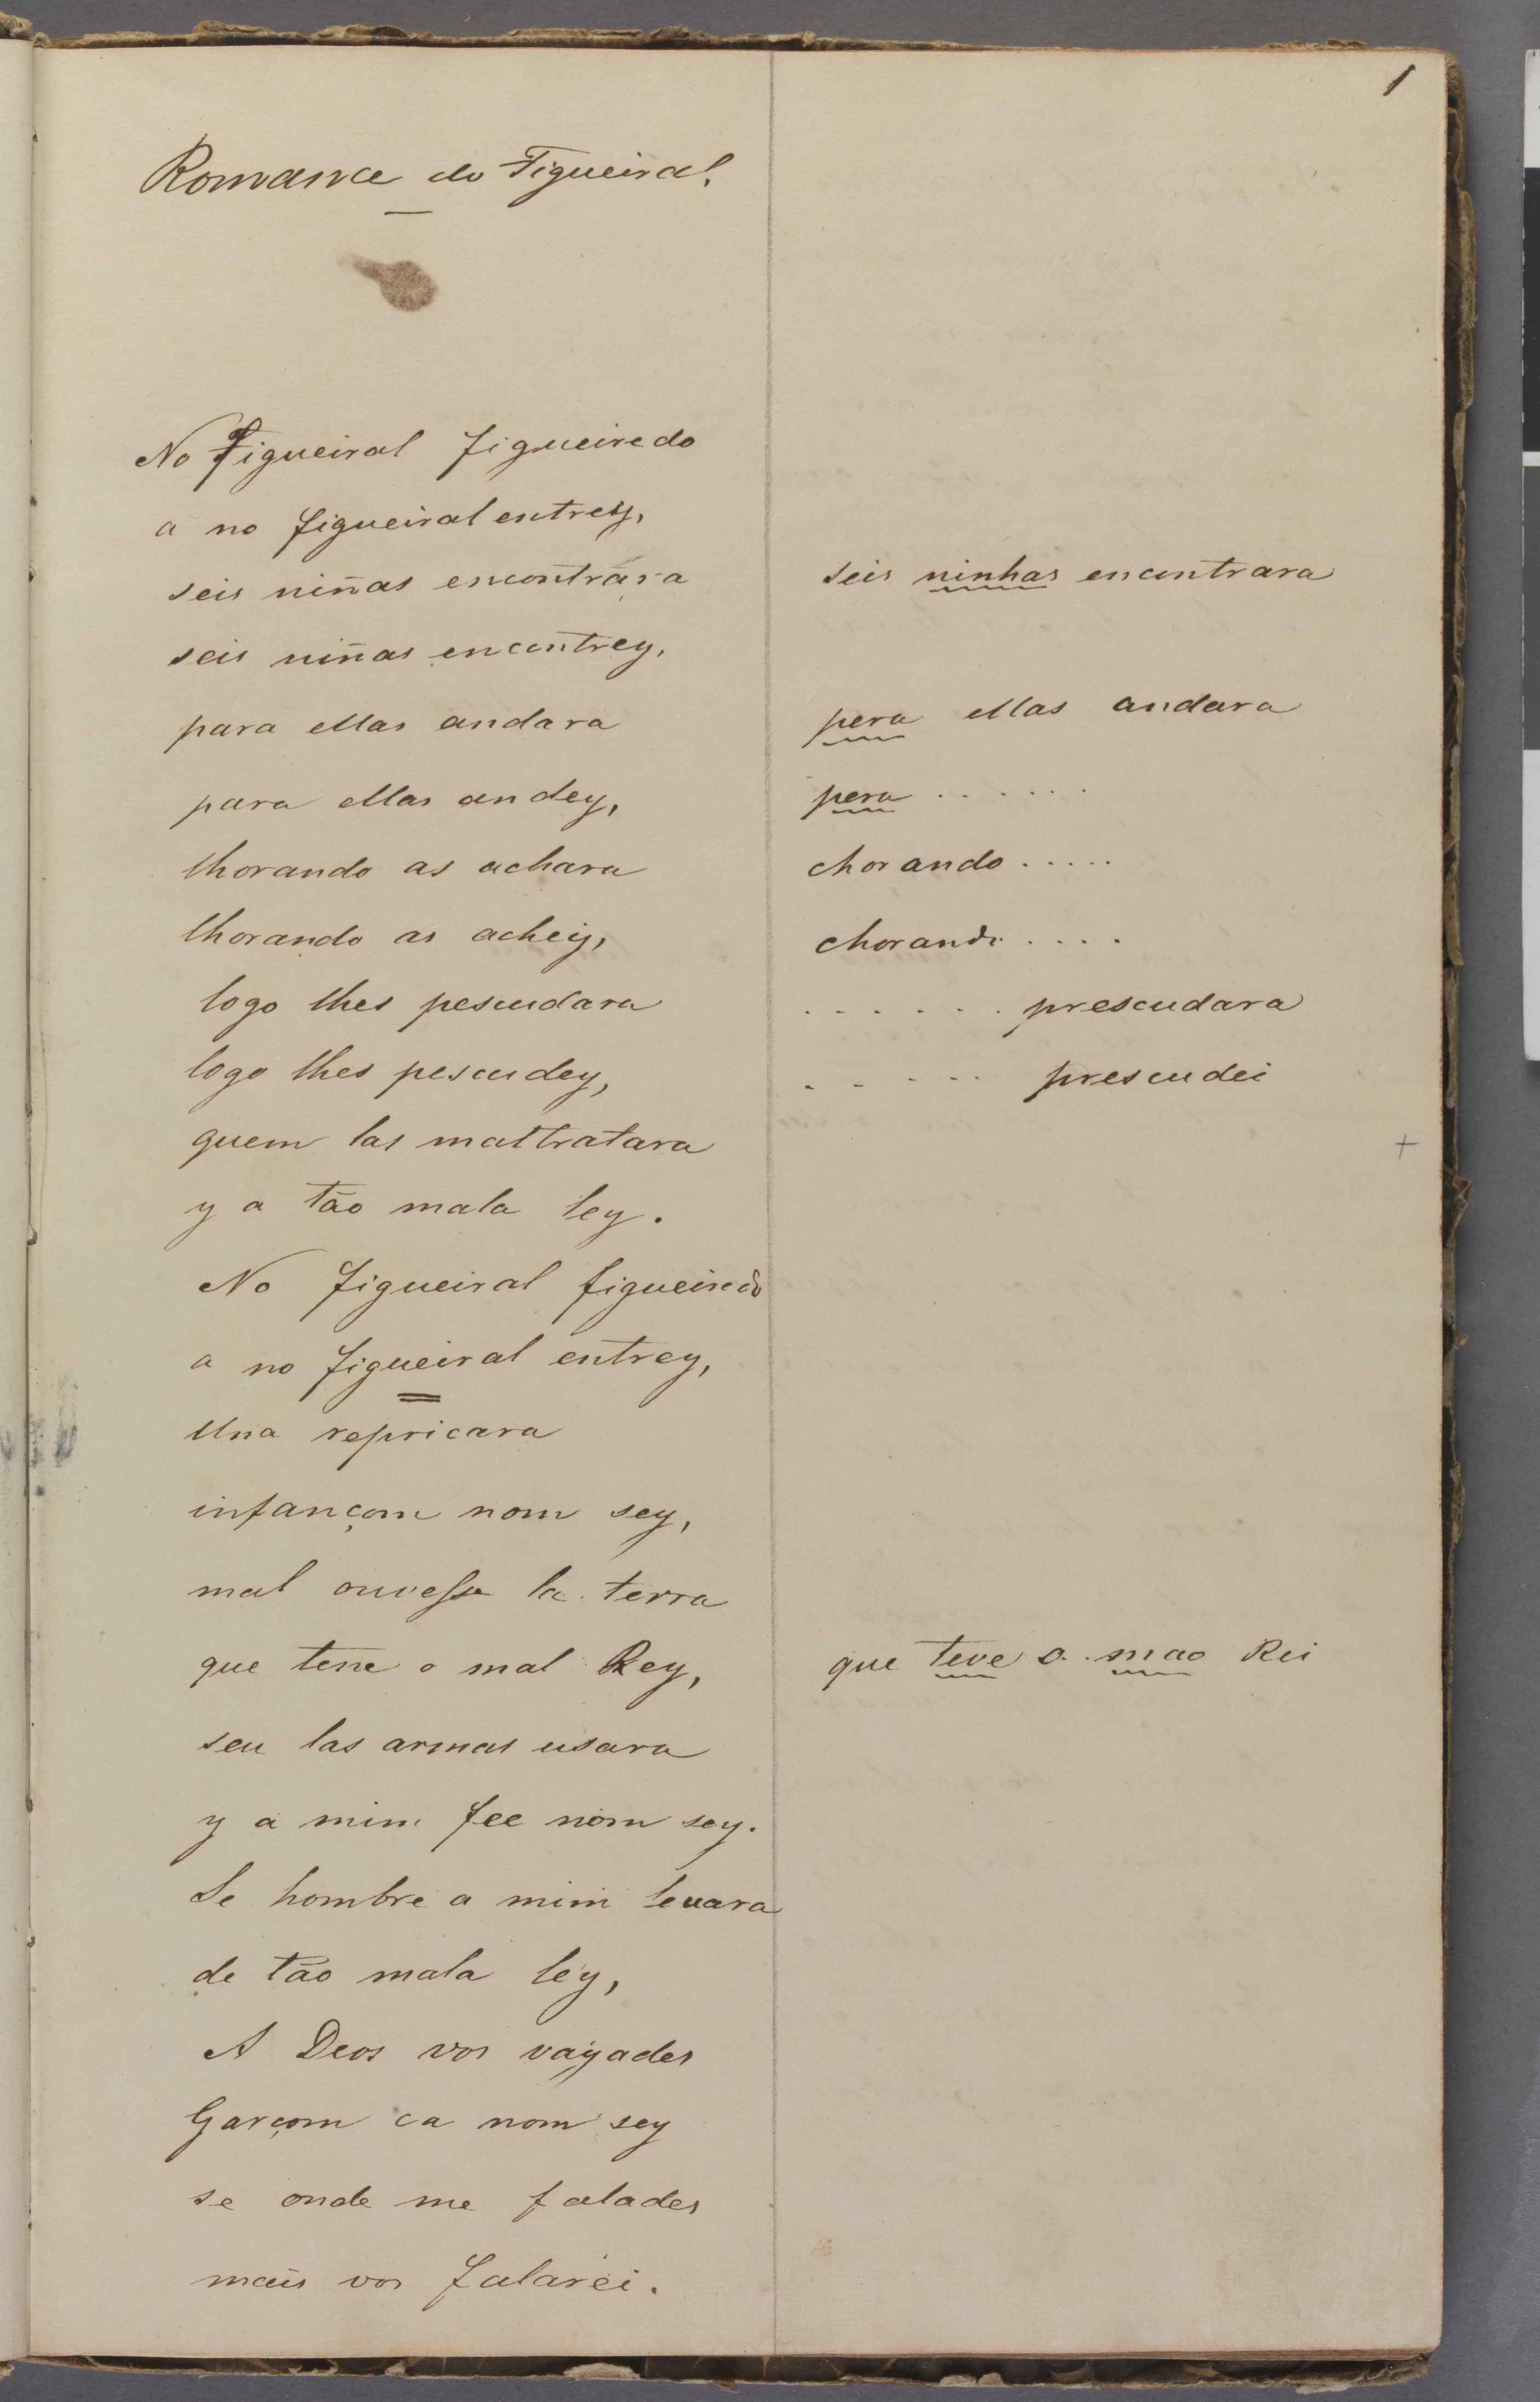 1
Romance do Figueiral.
No figueiral figueiredo
a no figueiral entrey,
seis niñas encontrara
seis ninhas encontrara
seis niñas encontrey,
para ellas andara
pera ellas andara
para ellas andey,
pera . . . . . .
lhorando as achara
chorando . . . . .
lhorando as achey,
chorando . . . .
logo lhes pescudara
. . . . . . prescudara
logo lhes pescudey,
. . . . . prescudei
quem las maltratara
+
y a tão mala ley.
No figueiral figueiredo
a no figueiral entrey,
Una repricara
infançom nom sey,
mal ouvesse la terra
que tene o mal Rey,
que teve o mao Rei
seu las armas usara
y a mim fee nom sey.
Se hombre a mim levara
de tão mala ley,
A Deos vos vayades
Garçom ca nom sey
se onde me falades
mais vos falarei.